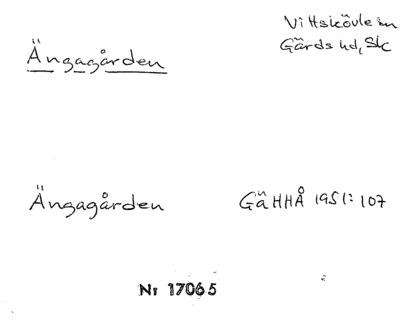 Vittskövle sn
Gärds hd, Sk
Ängagården
Ängagården GäHHÅ 1951: 107
Nr 17065